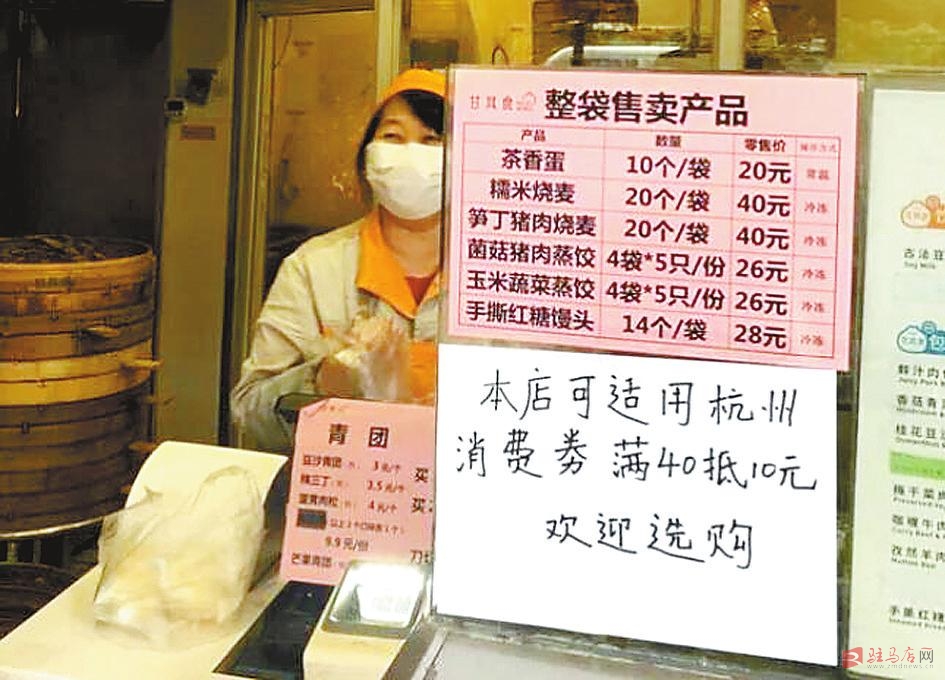 甘其食
整袋售卖产品
产品 数量 零售价 储存方式
茶香蛋 10个/袋 20元 常温
糯米烧麦 20个/袋 40元 冷冻
笋丁猪肉烧麦 20个/袋 40元 冷冻
菌菇猪肉蒸饺 4袋*5只/份 26元 冷冻
玉米蔬菜蒸饺 4袋*5只/份 26元 冷冻
手撕红糖馒头 14个/袋 28元 冷冻
本店可适用杭州
消费券 满40抵10元
欢迎选购
青 团
豆沙青团 3元/个 买
辣三丁 3.5元/个
蛋黄肉松 4元/个 买
9.9元/份
芒果青团 刀切
古法豆
Soy Milk
包
鲜汁肉
香菇青
桂花豆
梅干菜
咖喱牛肉
孜然羊肉
手撕红糖
驻马店网
www.zmdnews.cn